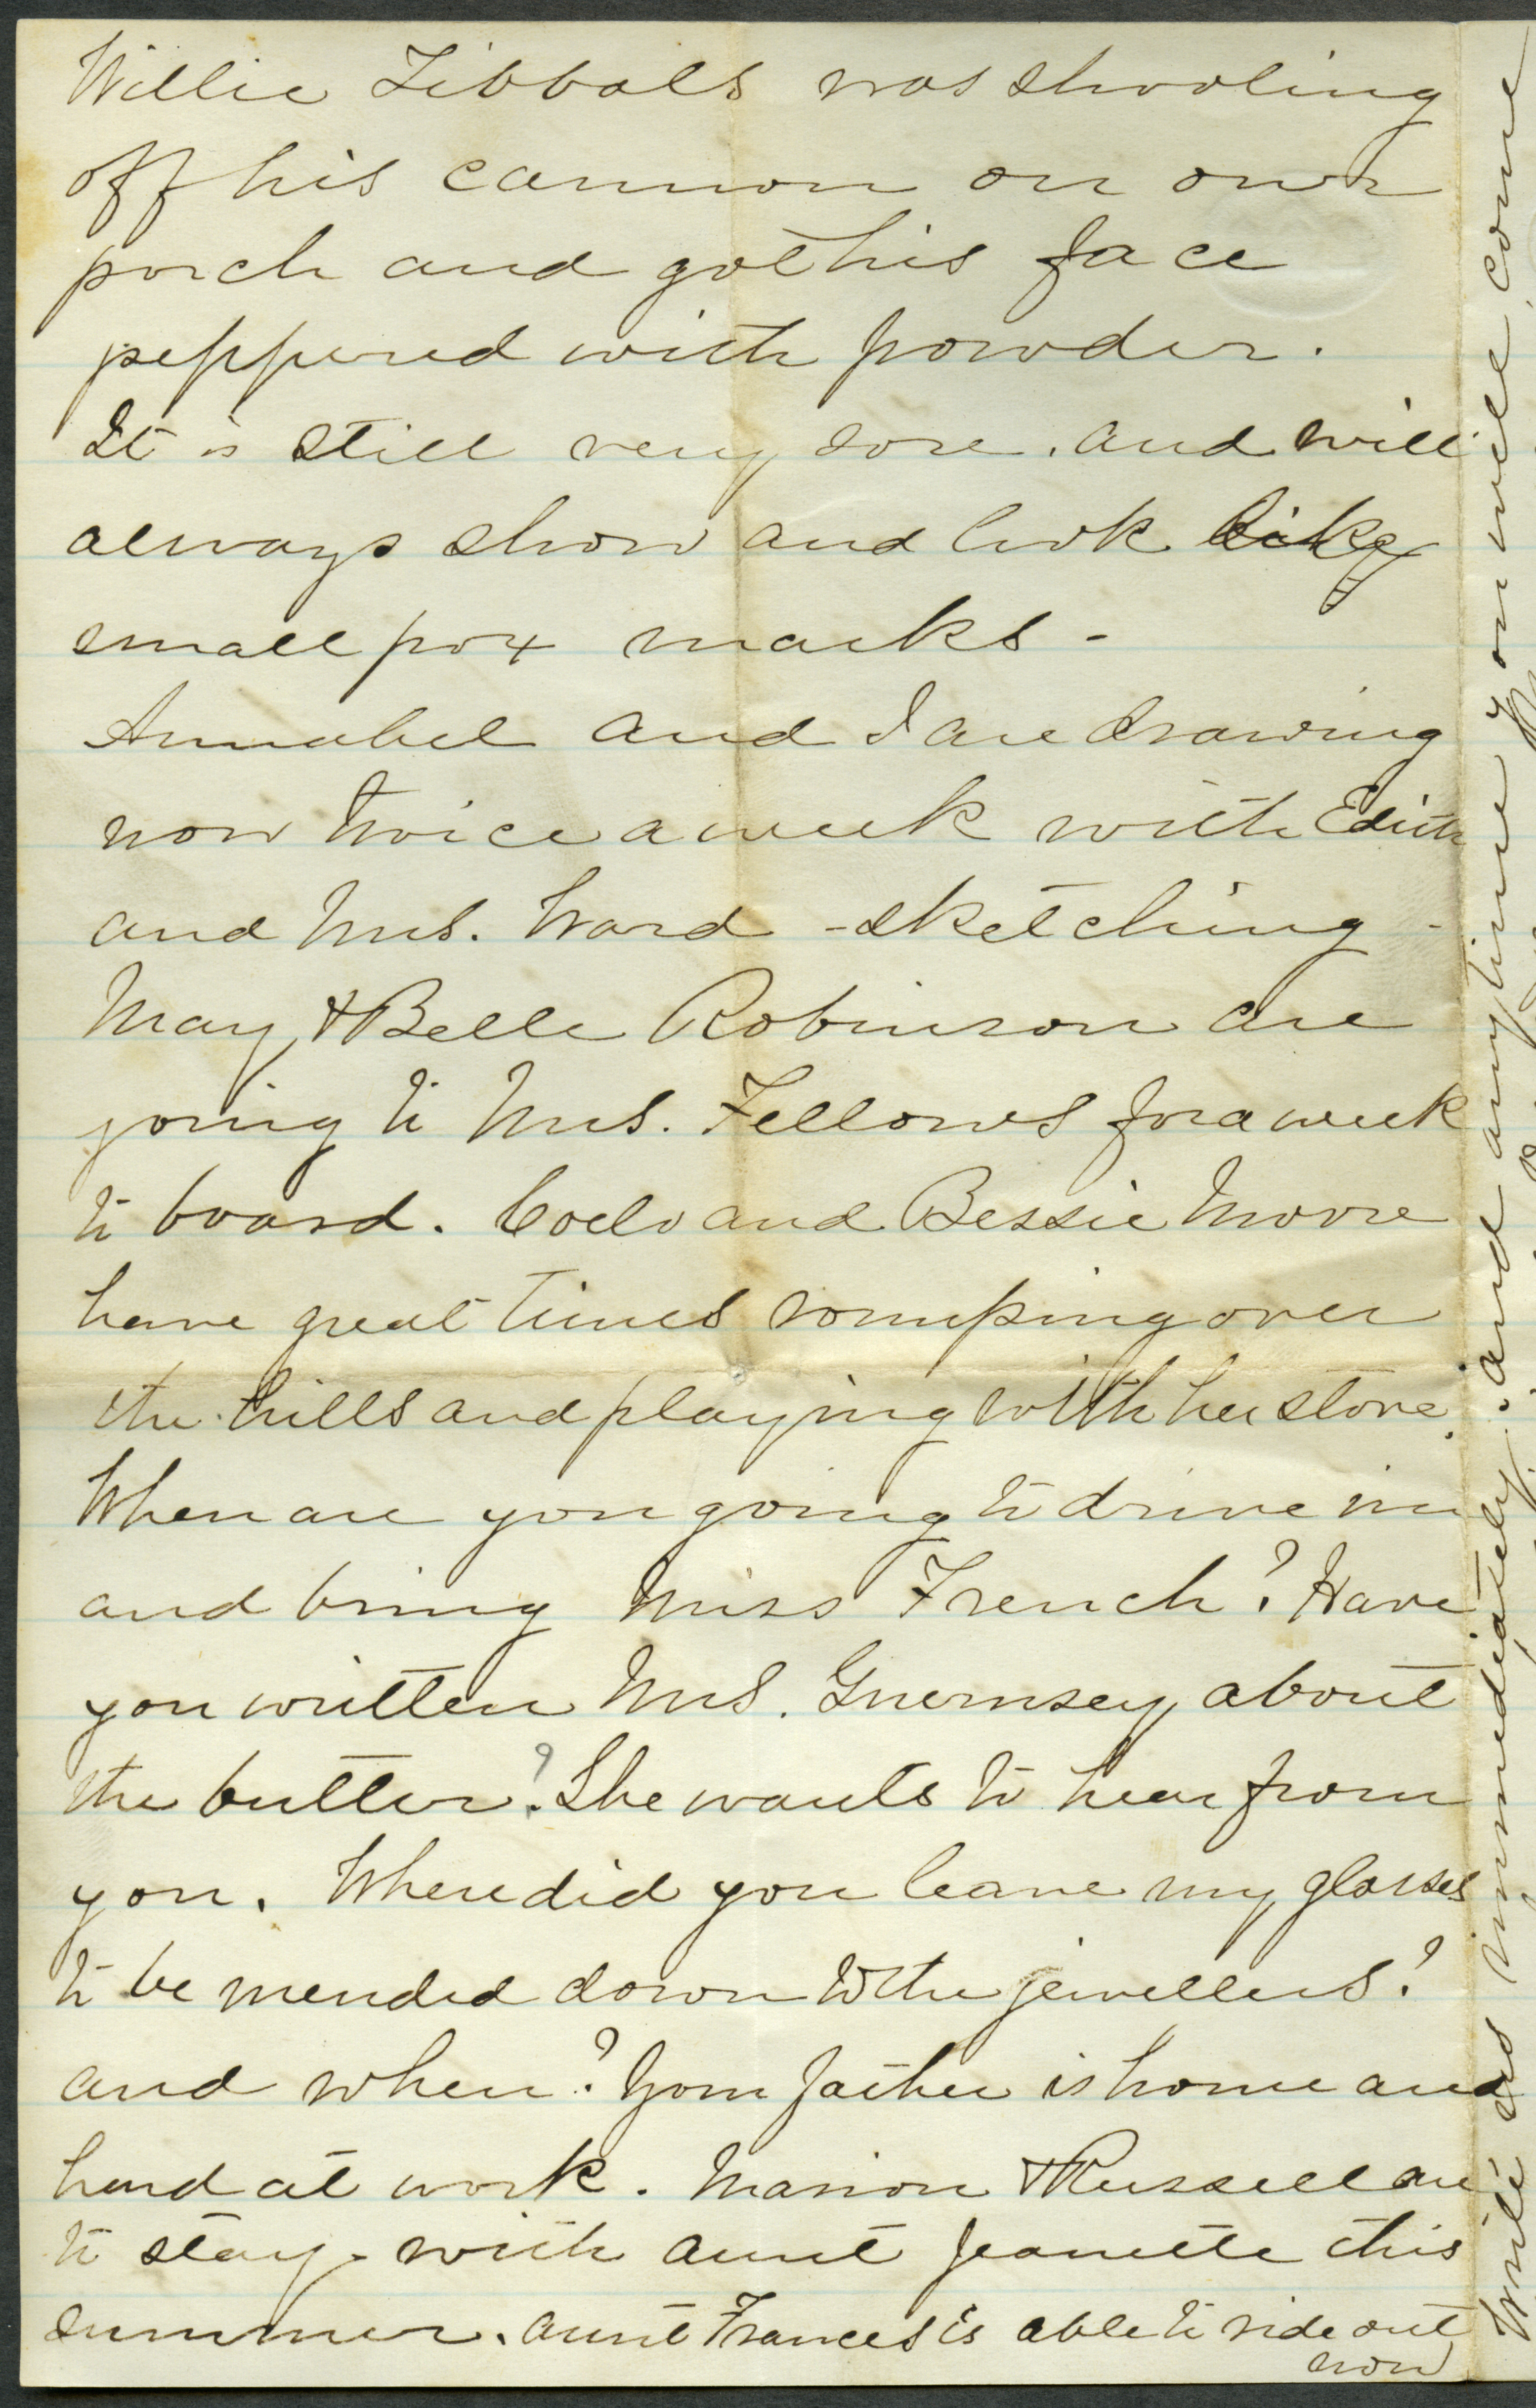 Willie Tibbals was shooting
off his cannon on our
porch and got his face
peppered with powder.
It is still very sore. and will
always show and look like
small pox marks -
Annabel and I are drawing
now twice a week with Edith
and Mrs. Ward - sketching -
May & Belle Robinson are
going to Mrs. Fellows for a week
to board. Coelo and Bessie Moore
have great times romping over
the hills and playing with her stove.
When are you going to drive in
and bring Miss French? Have
you written Mrs. Guernsey about
the butter? She wants to hear from
you. Where did you leave my glasses
to be mended down to the jewellers?
and when? Your father is home and
hard at work. Marion & Russell are
to stay with aunt Jeanette this
summer. aunt Frances is able to ride out
now
Write us immediately. and any time you will come